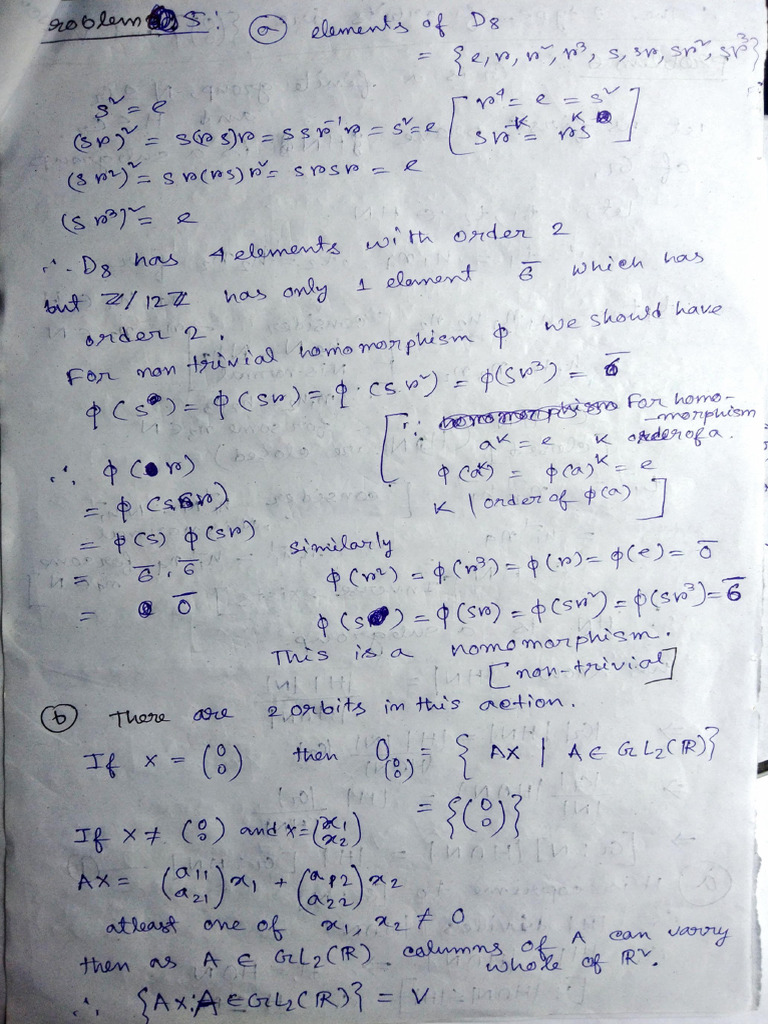 roblem 5: (a) elements of D8
= {e, r, r², r³, s, sr, sr², sr³}
s² = e
[r⁴ = e = s²
(sr)² = s(rs)r = ssr⁻¹r = s² = e
sr⁻ᴷ = rᴷs]
(sr²)² = sr(rs)r² = srsr = e
(sr³)² = e
∴ D8 has 4 elements with order 2
but Z/12Z has only 1 element 6̄ which has
order 2.
For non trivial homomorphism ϕ we should have
ϕ(s) = ϕ(sr) = ϕ(sr²) = ϕ(sr³) = 6̄
[∵ For homo-
morphism
aᴷ = e K order of a.
ϕ(aᴷ) = ϕ(a)ᴷ = e
K | order of ϕ(a)]
∴ ϕ(r)
= ϕ(ssr)
= ϕ(s) ϕ(sr)
= 6̄ . 6̄
= 0̄
similarly
ϕ(r²) = ϕ(r³) = ϕ(r) = ϕ(e) = 0̄
ϕ(s) = ϕ(sr) = ϕ(sr²) = ϕ(sr³) = 6̄
This is a homomorphism.
[non-trivial]
(b) There are 2 orbits in this action.
If x = (0 0) then O(0 0) = {AX | A ∈ GL₂(R)}
= {(0 0)}
If X ≠ (0 0) and x = (x₁ x₂)
AX = (a₁₁ a₂₁) x₁ + (a₁₂ a₂₂) x₂
atleast one of x₁, x₂ ≠ 0
then as A ∈ GL₂(R). columns of A can varry
whole of R².
∴ {AX : A ∈ GL₂(R)} = V